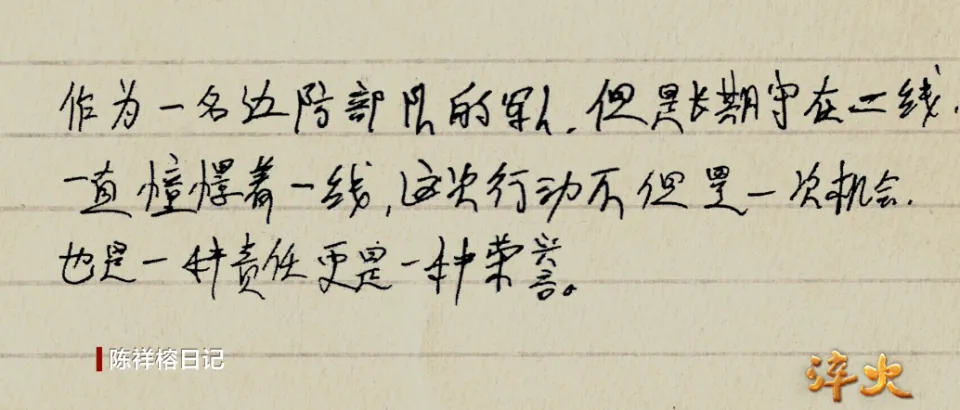 作为一名边防部队的军人,但是长期守在二线,
一直憧憬着一线,这次行动不但是一次机会,
也是一种责任更是一种荣誉。
陈祥榕日记
淬火